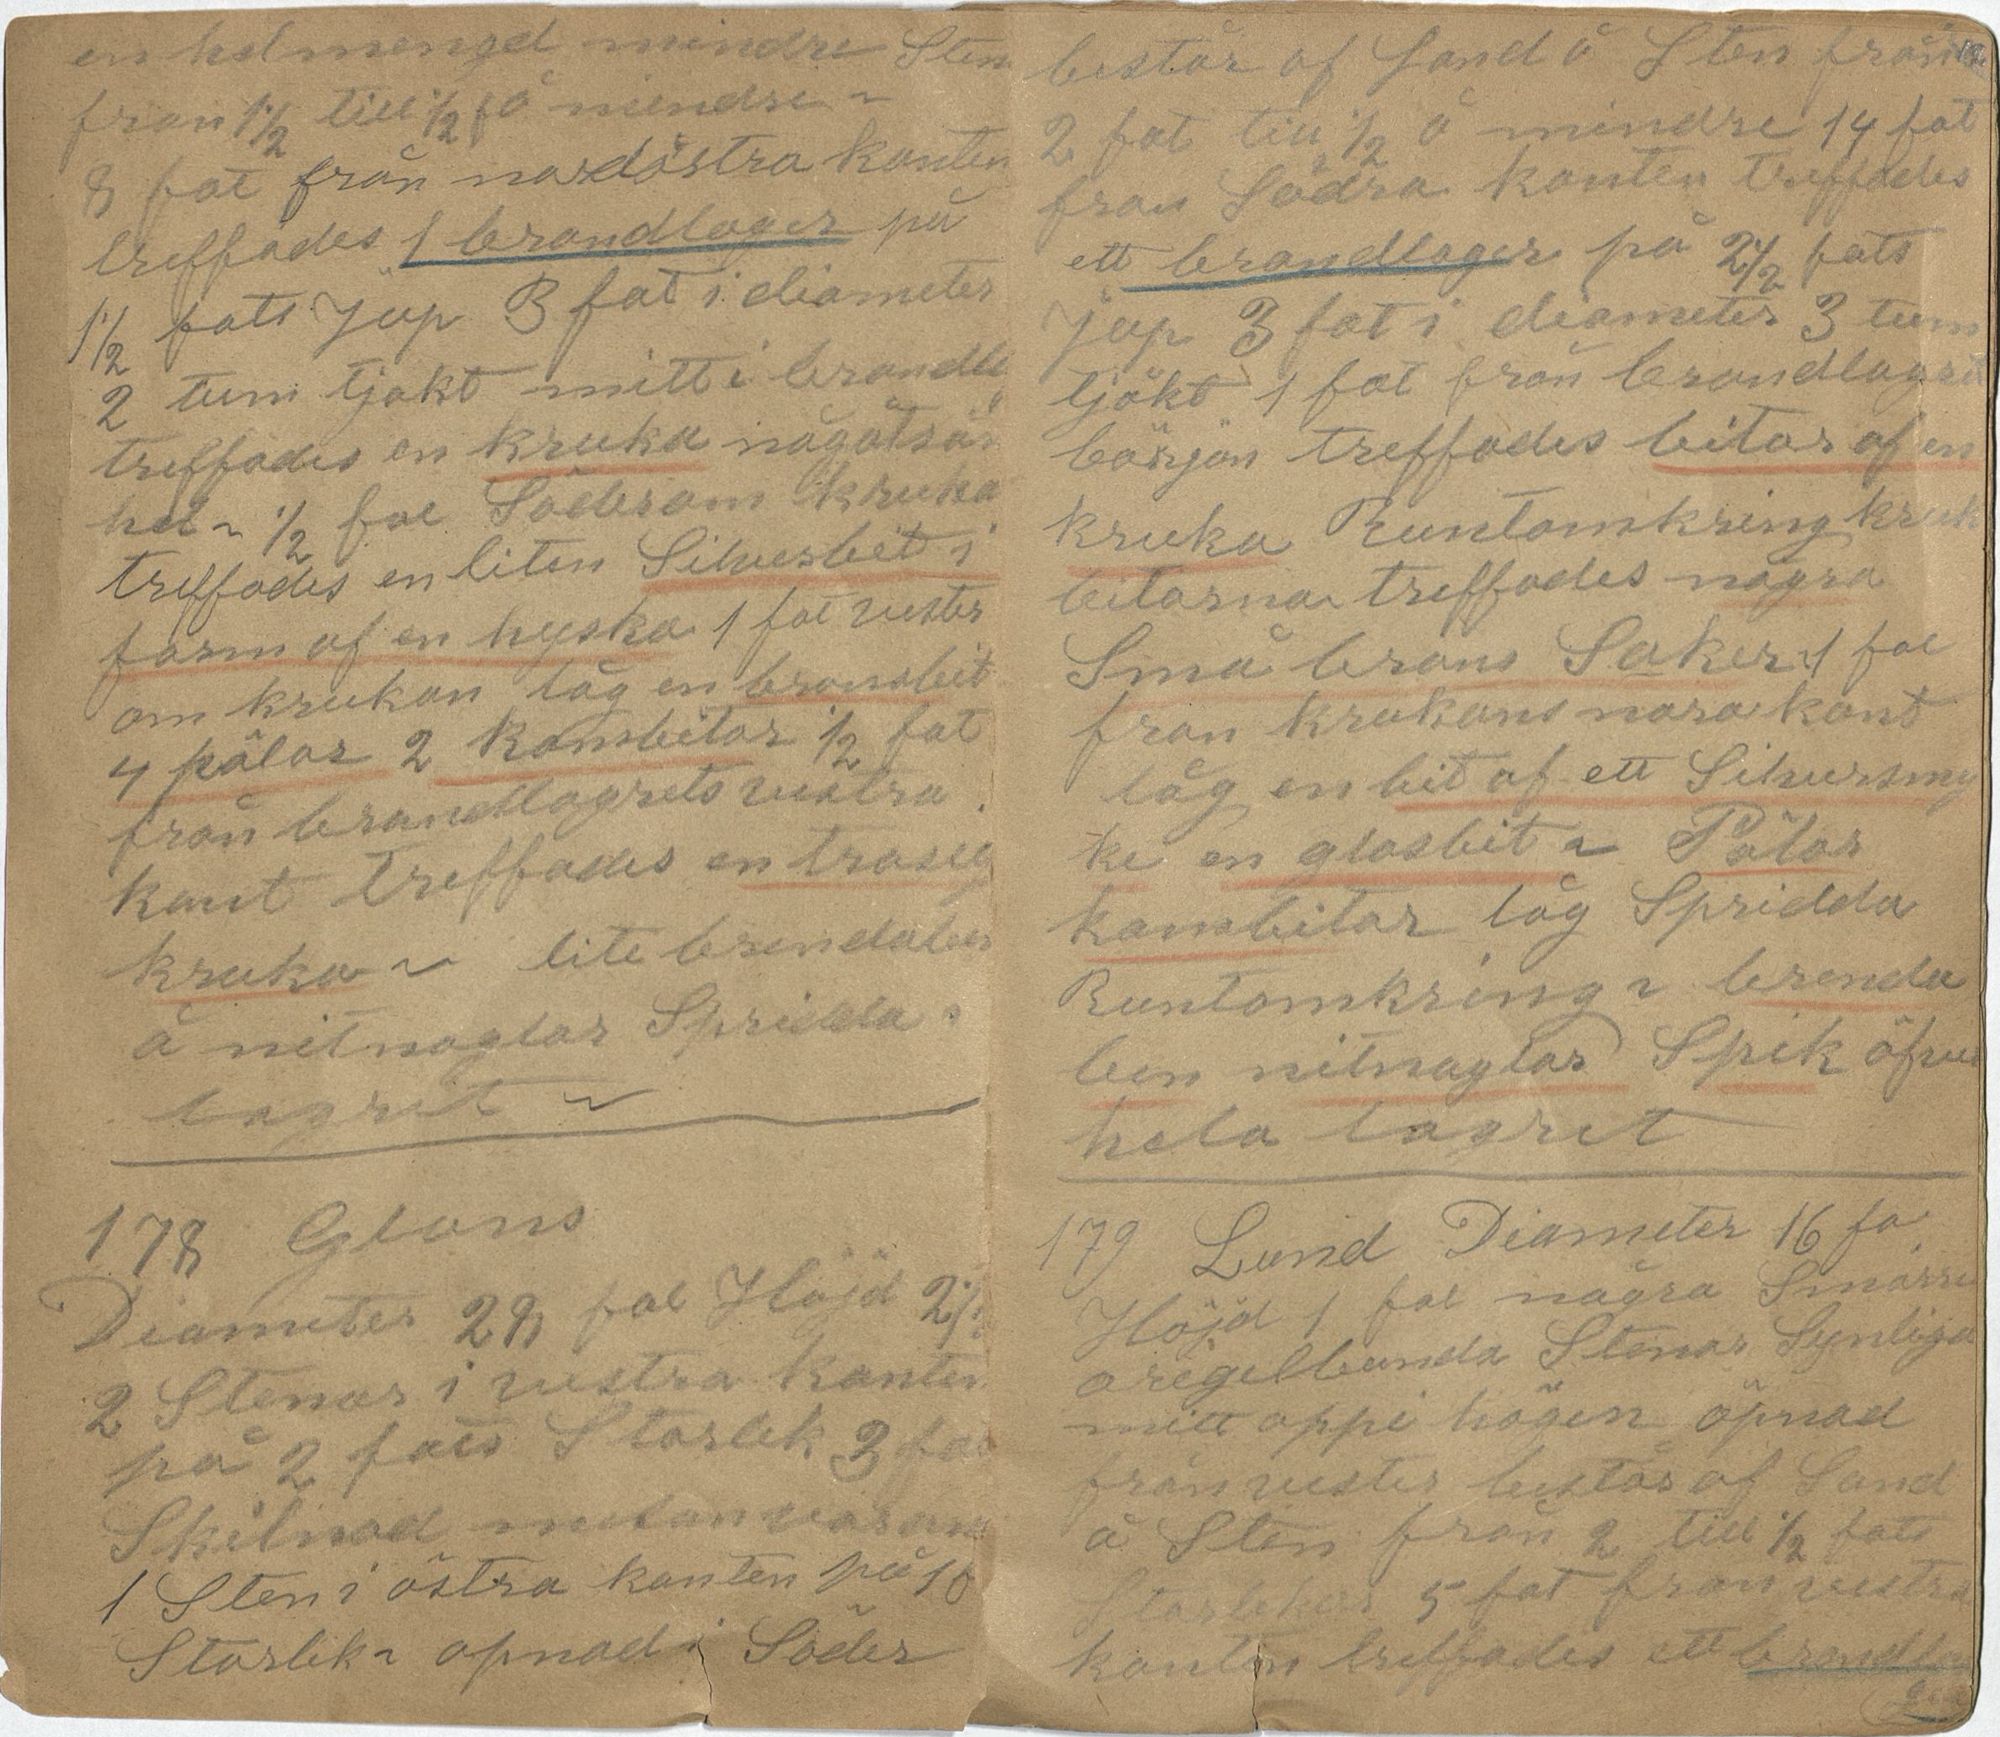 en helmengd mindre Sten
från 1 1/2 till 1/2 f å mindre ~
8 fot från nordöstra kanten
treffades 1 brandlager på
1 1/2 fots Jup 3 fot i diameter
2 tum tjokt mitt i brandla
treffades en kruka någåtsår
hel ~ 1/2 fot Söderom kruka
treffades en liten Silverbit i
form af en hyska 1 fot vester
om krukan låg en bronsbit
4 pälar 2 kambitar 1/2 fot
från brandlagrets vestra
kant treffades en trasig
kruka ~ lite brendaben
å nitnaglar Spridda
lagret ~
178 Glans
Diameter 28 fot Höjd 2 1/2
2 Stenar i vestra kanten
på 2 fots Storlek 3 fot
Skilnad melanvaran
1 Sten i östra kanten på 1 f
Storlek ~ opnad i Söder
består af Sand å Sten från
2 fot till 1/2 å mindre 14 fot
från Södra kanten treffades
ett brandlager på 2 1/2 fots
jup 3 fot i diameter 3 tum
tjökt 1 fot från brandlagret
börjän treffades bitar af en
kruka Runtomkring kruk
bitarna treffades några
Små brons Saker ~ 1 fot
från krukans nora kant
låg en bit af ett Silversmy
ke en glasbit ~ Pälar
kambitar låg Spridda
Runtomkring ~ brenda
ben nitnaglar Spik öfver
hela lagret
179 Lund Diameter 16 fo
Höjd 1 fot några Smärre
oregelbunda Stenar Synliga
mitt oppi högen öpnad
från vester består af Sand
å Sten från 2 till 1/2 fots
Storleker 5 fot från vestra
kanten treffades ett brandla